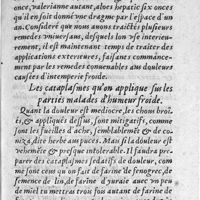 once, valerianne autant, aloes hepatic six onces
qu'il en soit donné vne dragme par l'espace d'vn
an. Considéré que nous auons traictés plusieurs
remedes vniuersaux, desquels lon vse interieure-
ment, il est maintenant temps de traiter des
applications exterieures, faisans commance-
ment par les remedes conuenables aux douleurs
causées d'intemperie froide.
Les cataplasmes qu'on applique sur les
parties malades d'humeur froide.
Quand la douleur est mediocre, les chous broiés,
& appliqués dessus, sont mitigatifs, comme
sont les fueilles d'ache, semblablement & de co-
niza, dite herbe aux puces. Mais si la douleur est
vehemente & presque intolerable. Il faudra pre-
parer des cataplasmes sedatifs de douleur, com-
me sont ceux qu'on fait de farine de fenogrec, de
semence de lin, de farine d'yuraie auec vn peu
de miel tu mettras trois fois autant de farine de